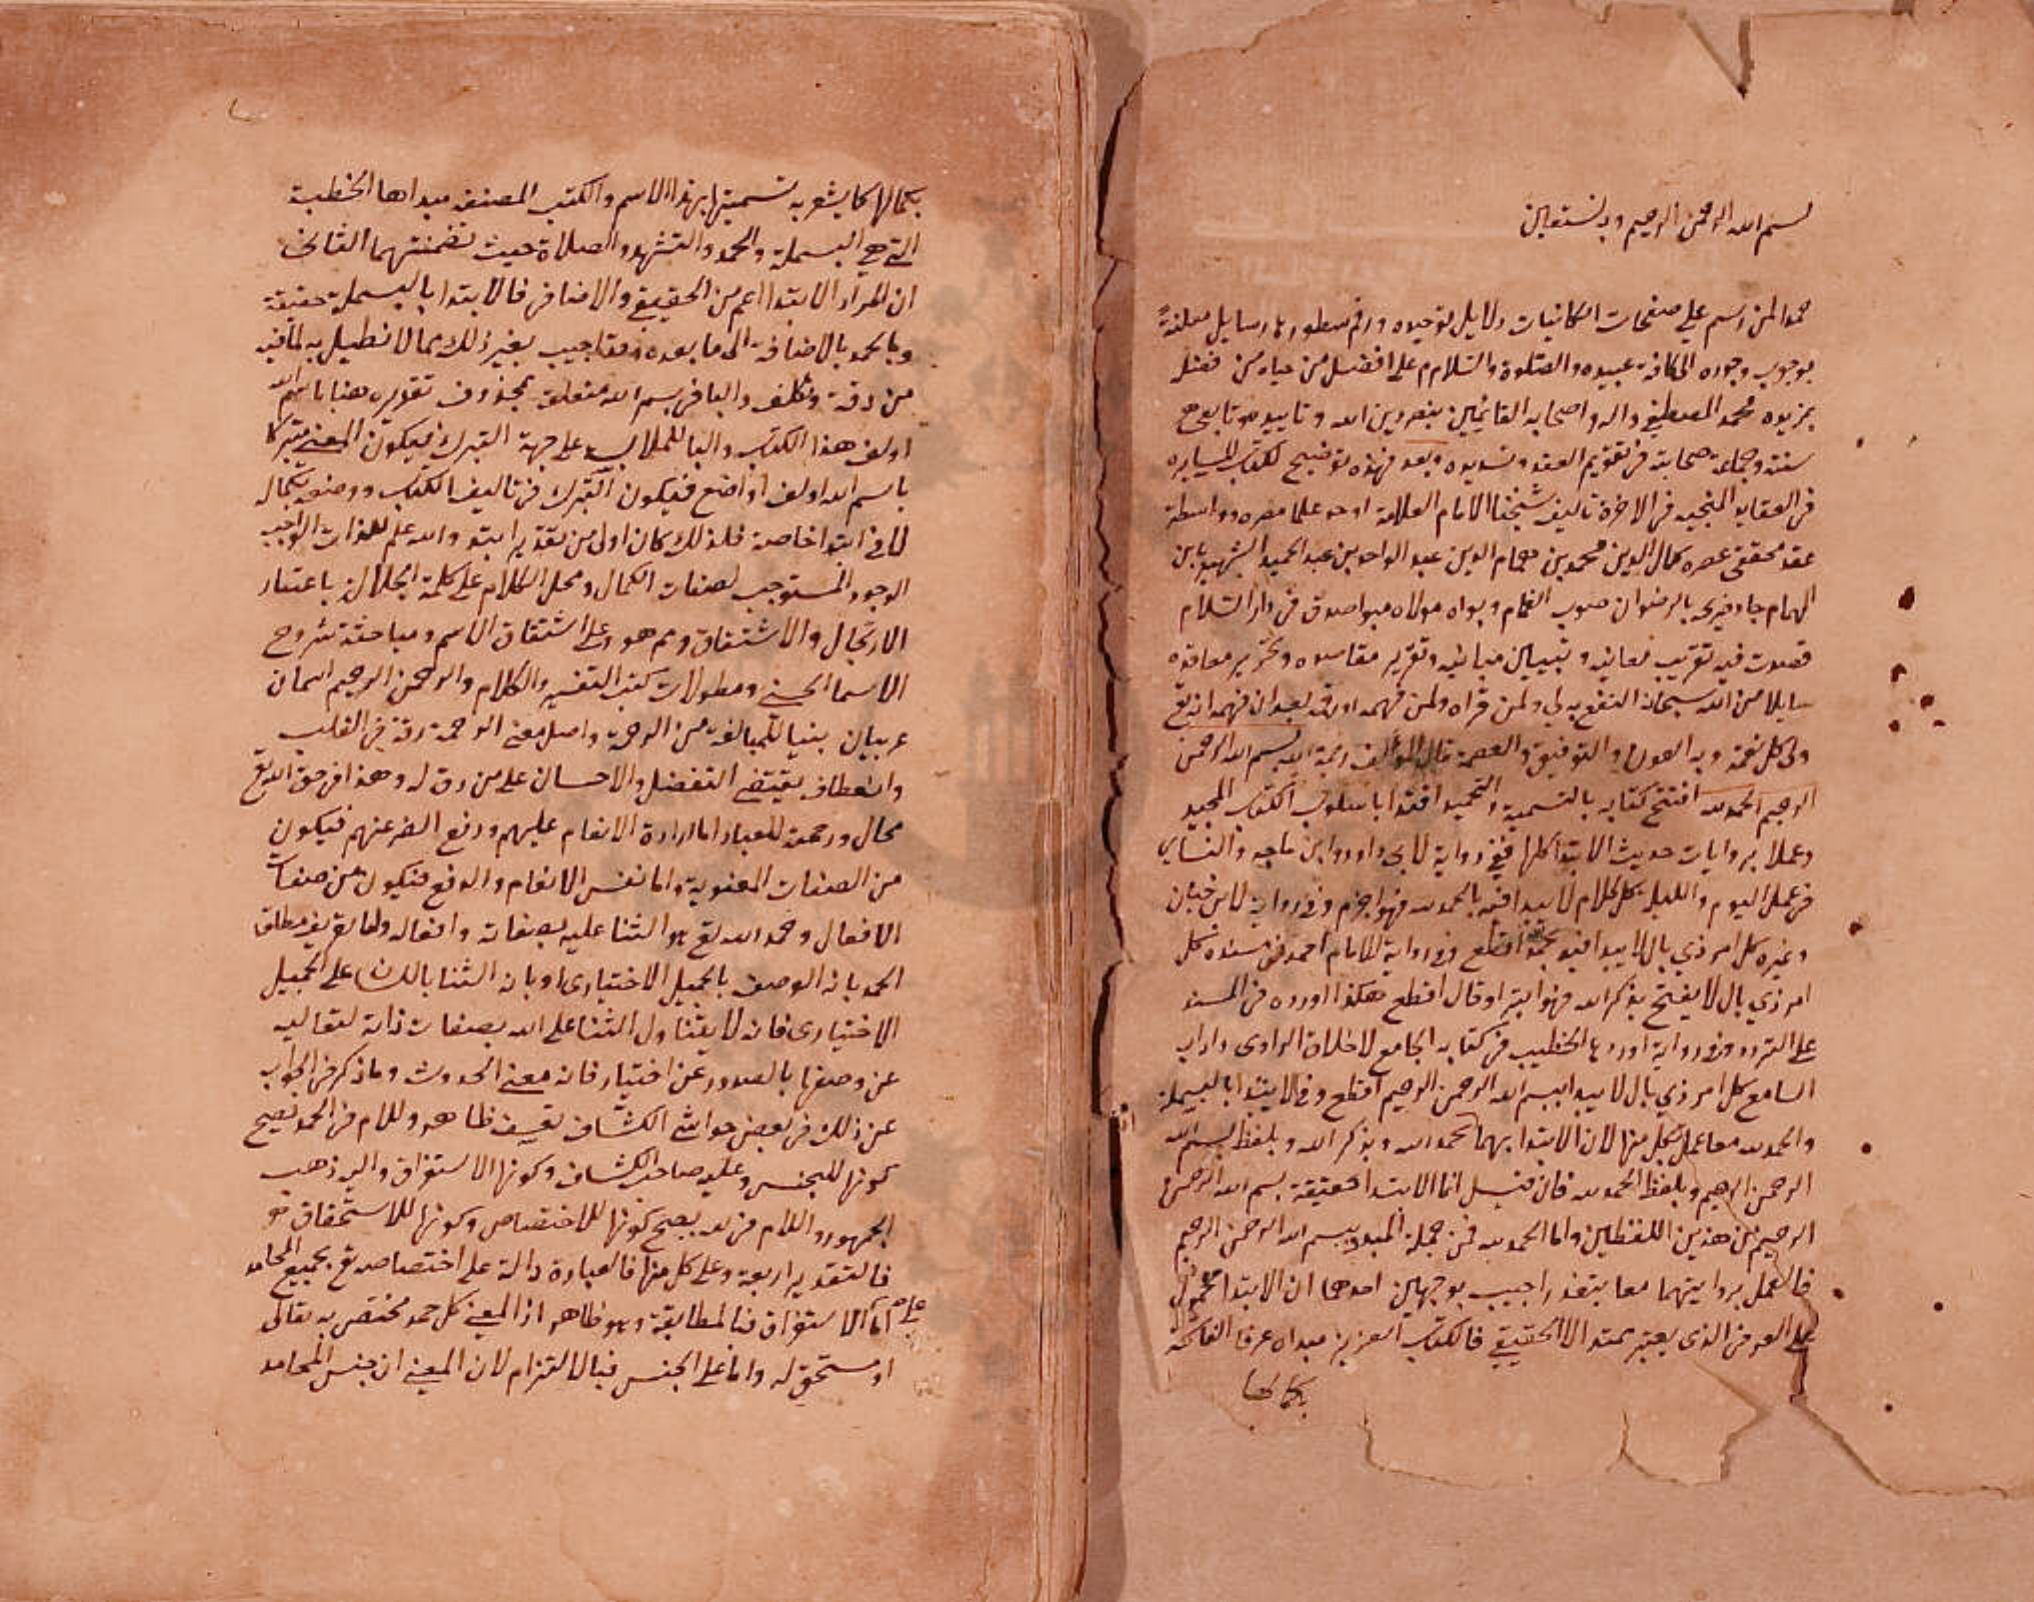 بسم الله الرحمن الرحيم وبه نستعين
حمدا لمن رسم على صفحات الكائنات دلايل توحيده ورقم سطورها رسايل معلنة
بوجوب وجوده الى كافة عبيده والصلوة والسلام على افضل من حباه من فضله
بمزيده محمد المصطفى واله واصحابه القائمين بنصر دين الله وتاييده وتابعي
سنته وجماعة صحابته في تقويم العقد وتسديده وبعد فهذه توضيح لكتاب المسايره
في العقايد المنجيه في الاخرة تاليف شيخنا الامام العلامة اوحد علما مصره وواسطة
عقد محققي عصره كمال الدين محمد بن همام الدين عبد الواحد بن عبد الحميد الشهير بابن
الهمام جاد ثرى بالرضوان صوب الغمام وبواه مولاه مبوا صدق في دار السلام
قصدت فيه تقريب معانيه وتبيين مبانيه وتقرير مقاصده وتحرير معاقده
سايلا من الله سبحانه النفع به لي ولمن قراه ولمن فهمه انه تع
ولي كل نعمة وبه العون والتوفيق والعصمة قال المولف رحمة الله بسم الله الرحمن
الرحيم الحمد لله افتتح كتابه بالتسمية والتحميد اقتدا باسلوب الكتاب المجيد
وعملا بروايات حديث الابتدا كلها ففي رواية لابي داود وابن ماجه والنساي
في عمل اليوم والليل كل كلام لا يبدا فيه بالحمد لله فهو اجزم وفي رواية لابن حبان
وغيره كل امر ذي بال لا يبدا فيه بحمد الله اقطع وفي رواية للامام احمد في مسنده كل
امر ذي بال لا يفتح بذكر الله فهو ابتر او قال اقطع هكذا اورده في المسند
على التردد وفي رواية اوردها الخطيب في كتابه الجامع لاخلاق الراوي واداب
السامع كل امر ذي بال لا يبدا ببسم الله الرحمن الرحيم اقطع وفي الابتدا بالبسملة
والحمد لله معا عمل بكل منها لان الابتدا بهما بحمد الله وبذكر الله وبلفظ بسم الله
الرحمن الرحيم وبلفظ الحمد لله فان قيل انما الابتدا حقيقة بسم الله الرحمن
الرحيم من هذين اللفظين واما الحمد لله فمن جملة المبدو ببسم الله الرحمن الرحيم
فالعمل بروايتهما معا يتعذر اجيب بوجهين احدهما ان الابتدا محمول
على العرفي الذي يعتبر ممتدا لا الحقيقي فالكتاب العزيز مبداه عرفا الفاتحة
بكمالها
بكمالها كما يشعر به تسميتها بهذا الاسم والكتب المصنفه مبداها الخطبة
التي هي البسملة والحمد والتشهد والصلاة حيث تضمنتهما الثاني
ان المراد الابتدا اعم من الحقيقي والاضافي فالابتدا بالبسملة حقيقة
وبالحمد بالاضافة الى ما بعده وقد اجيب بغير ذلك مما لا نطيل به لما فيه
من دقة وتكلف والبا في بسم الله متعلق بمحذوف تقديره هنا باسم الله
اولف هذا الكتاب والبا للملابسة على جهة التبرك فيكون المعنى متبركا
باسم الله اولف او اضع فيكون التبرك في تاليف الكتاب ووضعه بكماله
لا في ابتدا خاصة فلذلك كان اولى من تقدير ابتدا والله علم للذات الواجب
الوجود المستوجب لصفات الكمال ومحل الكلام على كلمة الجلال باعتبار
الارتجال والاشتقاق ومم هو وعلى اشتقاق الاسم ومباحثه شروح
الاسما الحسنى ومطولات كتب التفسير والكلام والرحمن الرحيم اسمان
عربيان بنيا للمبالغة من الرحمة واصل معنى الرحمة رقة في القلب
وانعطاف يقتضي التفضل والاحسان على من رق له وهذا في حق الله تع
محال ورحمته للعباد اما ارادة الانعام عليهم ودفع الضر عنهم فيكون
من الصفات المعنوية واما نفس الانعام والدفع فيكون من صفات
الافعال وحمد الله تع هو الثنا عليه بصفاته وافعاله واما تعريف مطلق
الحمد بانه الوصف بالجميل الاختياري او بانه الثنا باللسان على الجميل
الاختياري فانه لا يتناول الثنا على الله بصفات ذاته لتعاليه
عن وصفها بالصدور عن اختيار فانه معنى الحدوث وما ذكر في الجواب
عن ذلك في بعض حواشي الكشاف تعسف ظاهر وللام في الحمد يصح
كونها للجنس وعليه صاحب الكشاف وكونها الاستغراق واليه ذهب
الجمهور واللام في لله يصح كونها للاختصاص وكونها للاستحقاق
فالتقدير اربعة وعلى كل منها فالعبارة دالة على اختصاصه تع بجميع المحامد
اما على الاستغراق فبالمطابقة وهو ظاهر اذ المعنى كل حمد مختص به تعالى
او مستحق له واما على الجنس فبالالتزام لان المعنى ان جنس المحامد